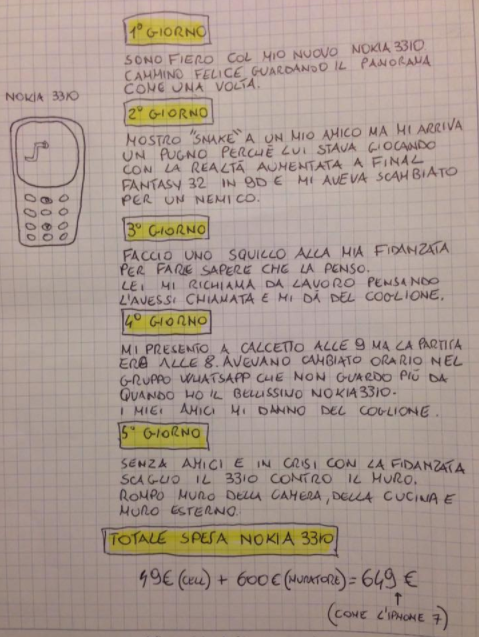 1° GIORNO
SONO FIERO COL MIO NUOVO NOKIA 3310.
CAMMINO FELICE GUARDANDO IL PANORAMA
COME UNA VOLTA.
NOKIA 3310
2° GIORNO
MOSTRO "SNAKE" A UN MIO AMICO MA MI ARRIVA
UN PUGNO PERCHÉ LUI STAVA GIOCANDO
CON LA REALTÀ AUMENTATA A FINAL
FANTASY 32 IN 9D E MI AVEVA SCAMBIATO
PER UN NEMICO.
3° GIORNO
FACCIO UNO SQUILLO ALLA MIA FIDANZATA
PER FARE SAPERE CHE LA PENSO.
LEI MI RICHIAMA DA LAVORO PENSANDO
L'AVESSI CHIAMATA E MI DÀ DEL COGLIONE.
4° GIORNO
MI PRESENTO A CALCETTO ALLE 9 MA LA PARTITA
ERA ALLE 8. AVEVANO CAMBIATO ORARIO NEL
GRUPPO WHATSAPP CHE NON GUARDO PIÙ DA
QUANDO HO IL BELLISSIMO NOKIA 3310.
I MIEI AMICI MI DANNO DEL COGLIONE.
5° GIORNO
SENZA AMICI E IN CRISI CON LA FIDANZATA
SCAGLIO IL 3310 CONTRO IL MURO.
ROMPO MURO DELLA CAMERA, DELLA CUCINA E
MURO ESTERNO.
TOTALE SPESA NOKIA 3310
49€ (CELL) + 600€ (MURATORE) = 649 €
(COME L'IPHONE 7)